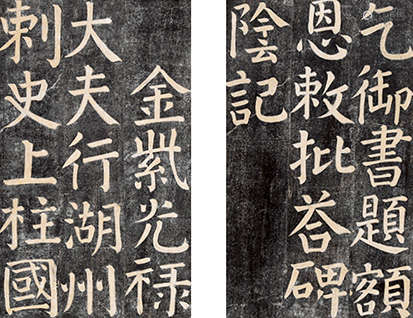 乞御書題額
恩敕批荅碑
陰記
金紫光禄
大夫行湖州
刺史上柱國